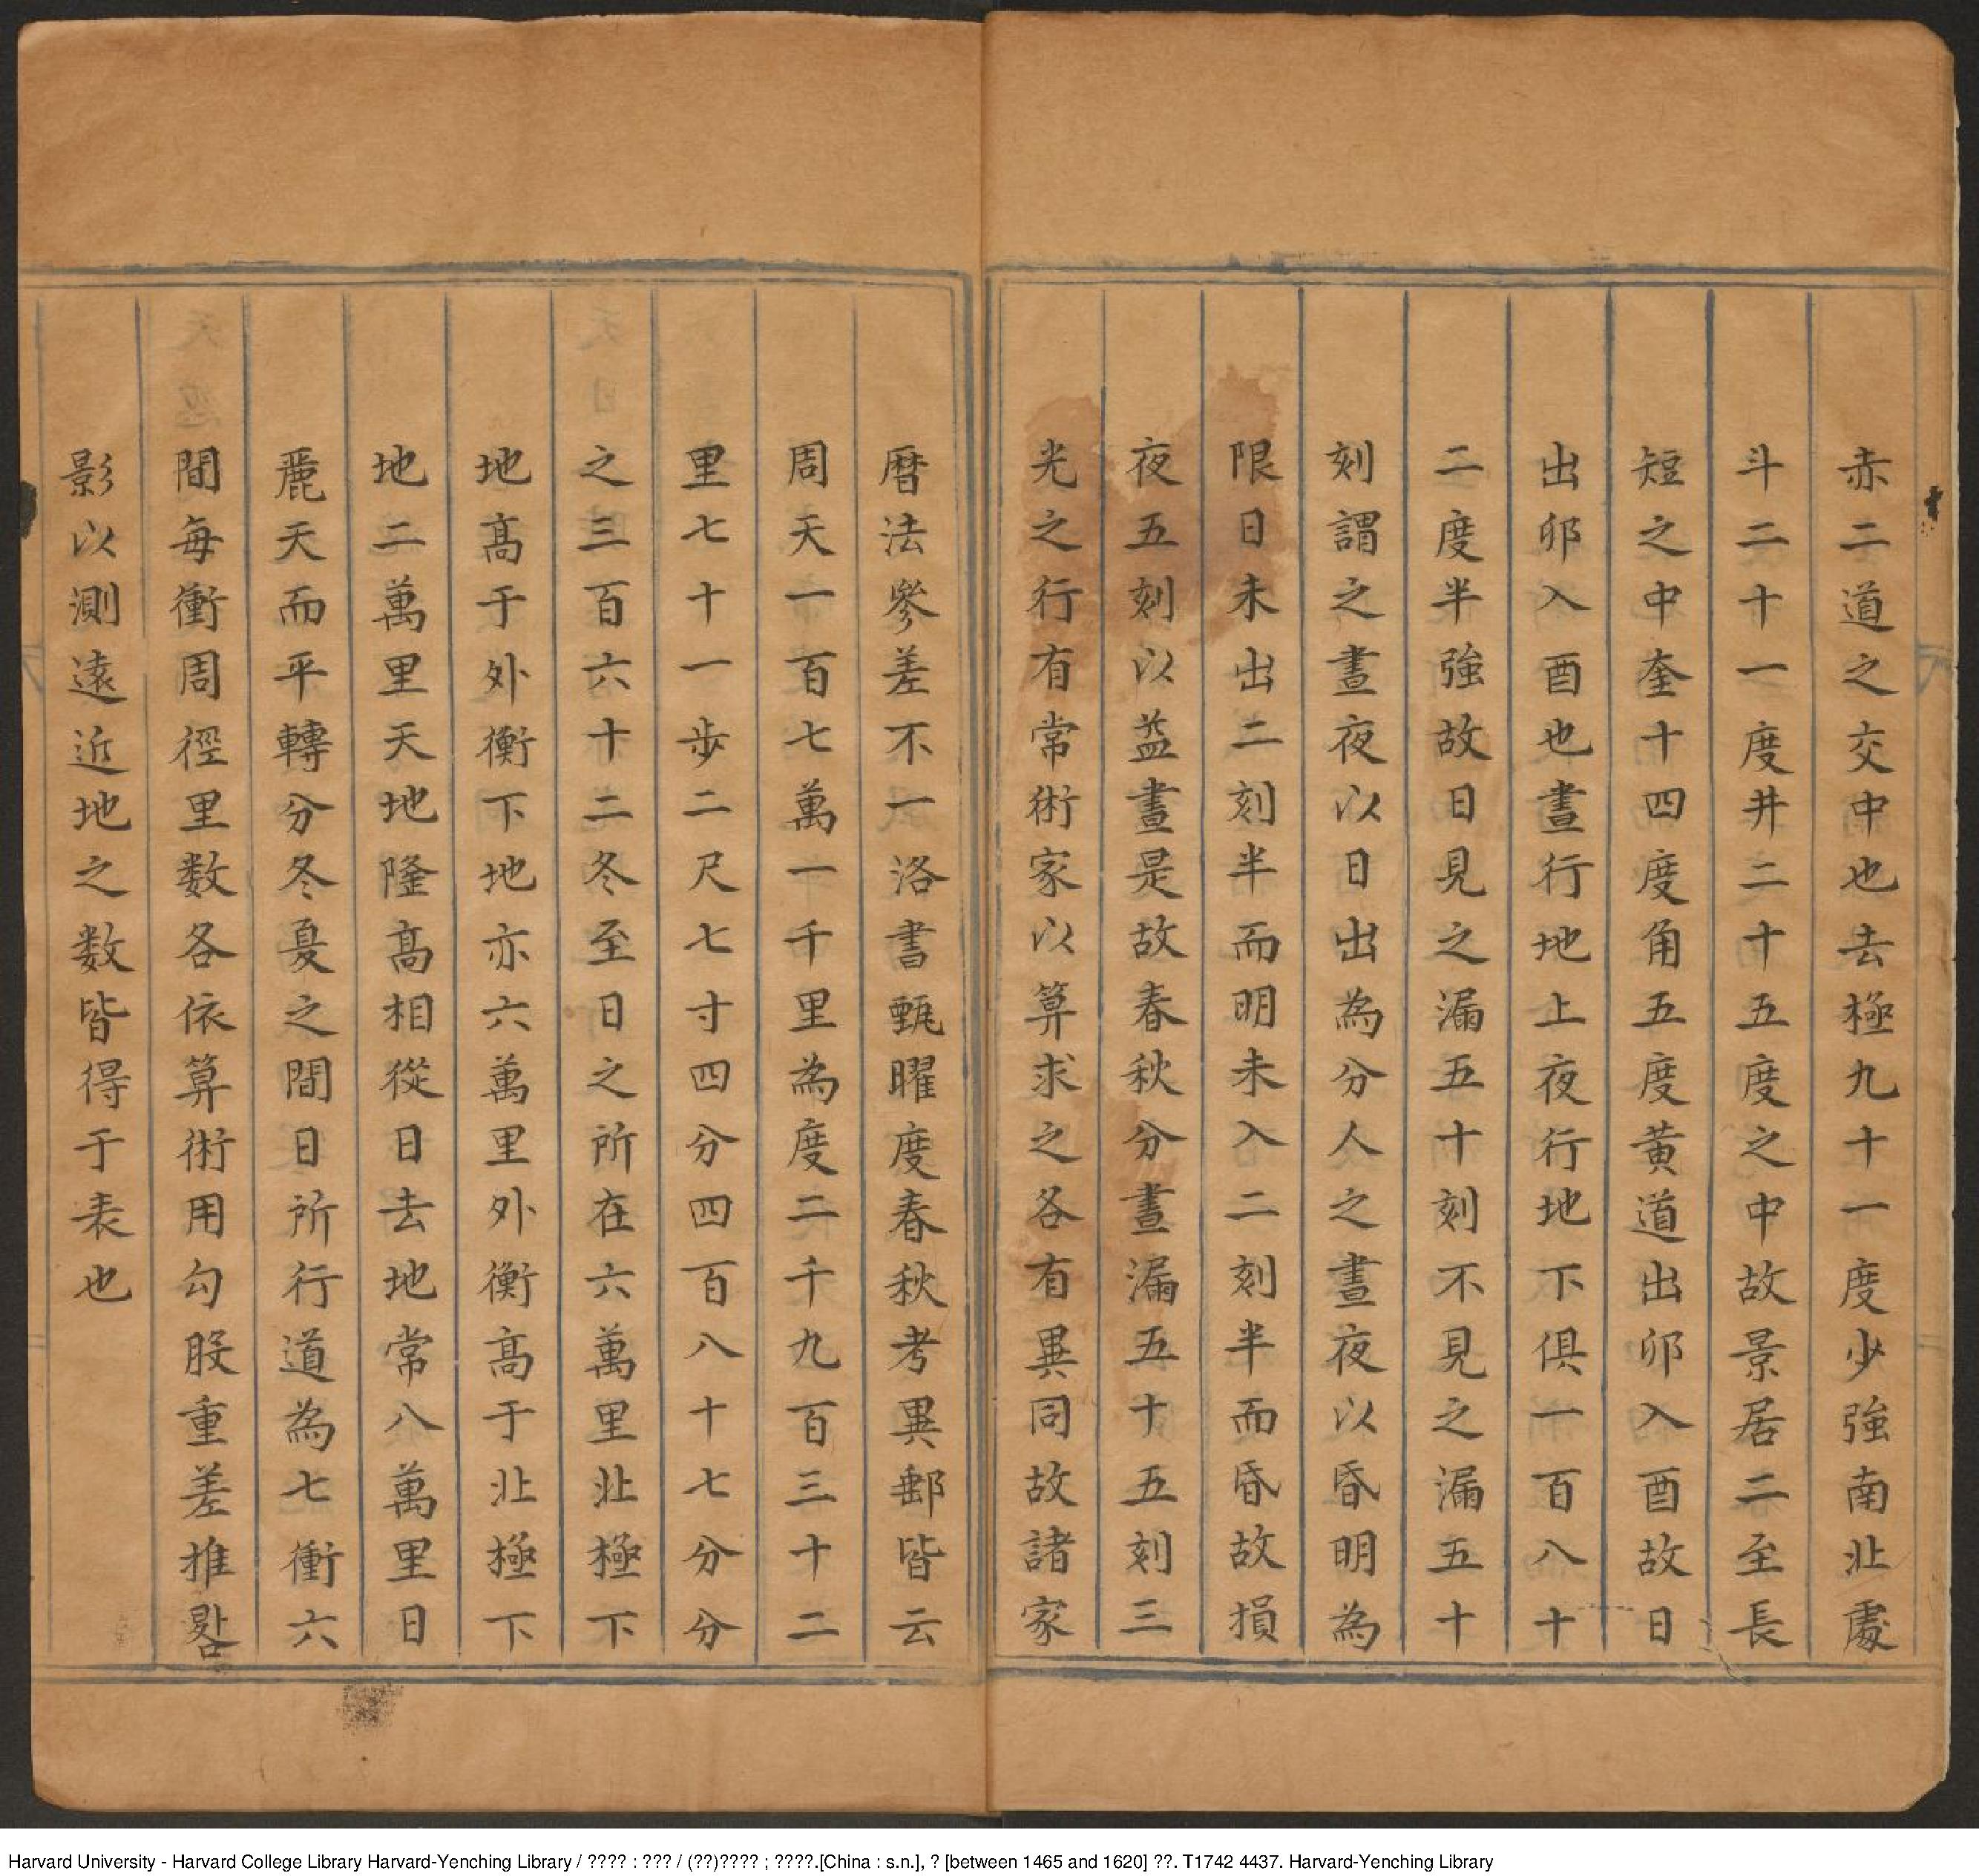 赤二道之交中也去極九十一度少強南北處
斗二十一度井二十五度之中故景居二至長
短之中奎十四度角五度黄道出卯入酉故日
出卯入酉也晝行地上夜行地下俱一百八十
二度半強故日見之漏五十刻不見之漏五十
刻謂之晝夜以日出為分人之晝夜以昏明為
限日未出二刻半而明未入二刻半而昏故損
夜五刻以益晝是故春秋分晝漏五十五刻三
光之行有常術家以算求之各有異同故諸家
暦法參差不一洛書甄曜度春秋考異郵皆云
周天一百七萬一千里為度二千九百三十二
里七十一歩二尺七寸四分四百八十七分分
之三百六十二冬至日之所在六萬里北極下
地髙于外衡下地亦六萬里外衡髙于北極下
地二萬里天地隆髙相從日去地常八萬里日
麗天而平轉分冬夏之間日所行道為七衝六
間每衝周徑里数各依算術用勾股重差推晷
影以測遠近地之数皆得于表也
Harvard University - Harvard College Library Harvard-Yenching Library / ???? : ??? / (??)???? ; ????.[China : s.n.], ? [between 1465 and 1620] ??. T1742 4437. Harvard-Yenching Library